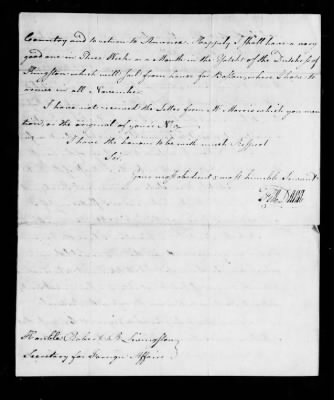 Country and to return to America. Happily I shall have a very
good one in Three Weeks or a Month in the Yatcht of the Dutchess of
Kingston which will sail from hence for Boston, where I hope to
arrive in all November.
I have not received the Letter from Mr. Morris which you men
tion, or the original of yours No.
I have the honour to be with much Respect
Sir,
Your most obedient & most humble Servant
Honble: Robert R. Livingston
Secretary for Foreign Affairs